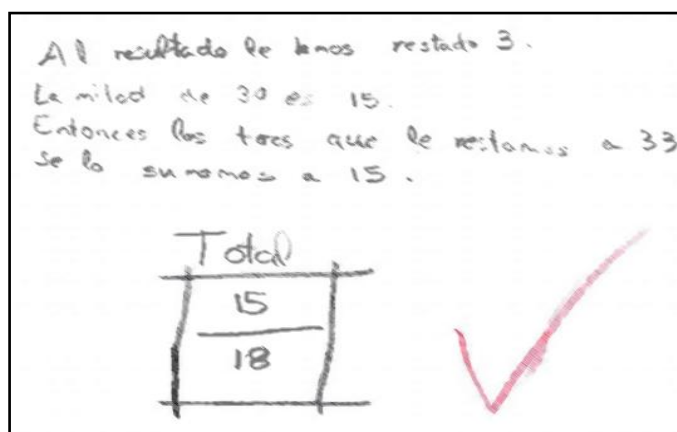 Al resultado le hemos restado 3.
La mitad de 30 es 15.
Entonces los tres que le restamos a 33
se lo sumamos a 15.
Total
15
18